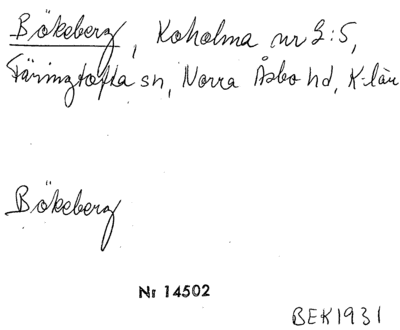 Bökeberg, Koholma nr 2:5,
Färingtofta sn, Norra Åsbo hd, K-län
Bökeberg
Nr 14502
BEK1931